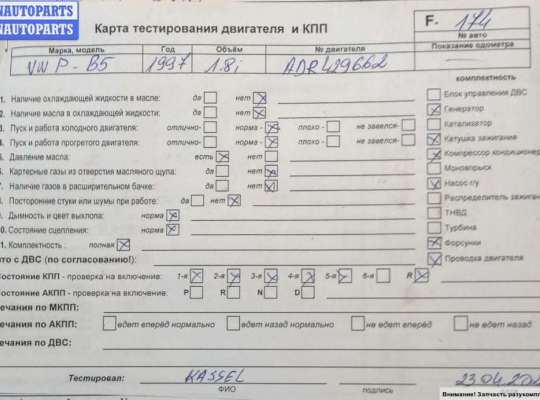 NAUTOPARTS
NAUTOPARTS
Карта тестирования двигателя и КПП
F- 174
№ авто
Марка, модель Год Объём № двигателя Показание одометра
VW P-B5 1997 1.8i ADR429662
комплектность
1. Наличие охлаждающей жидкости в масле: да нет Блок управления ДВС
2. Наличие масла в охлаждающей жидкости: да нет Генератор
3. Пуск и работа холодного двигателя: отлично- норма - плохо - не завелся- Катализатор
Пуск и работа прогретого двигателя: отлично- норма - плохо - не завелся- Катушка зажигания
Давление масла: есть нет Компрессор кондиционер
Картерные газы из отверстия масляного щупа: да нет Моновпрыск
Наличие газов в расширительном бачке: да нет Насос г/у
Посторонние стуки или шумы при работе: да нет Распределитель зажиган
Дымность и цвет выхлопа: норма ТНВД
0. Состояние сцепления: норма Турбина
1. Комплектность : полная Форсунки
то с ДВС (по согласованию!): Проводка двигателя
Состояние КПП - проверка на включение: 1-я 2-я 3-я 4-я 5-я 6-я R
Состояние АКПП - проверка на включение: P R N D
ечания по МКПП:
ечания по АКПП: едет вперёд нормально едет назад нормально не едет вперёд не едет назад
ечания по ДВС:
Тестировал: KASSEL 23.04.202
ФИО подпись
Внимание! Запчасть разукомпл